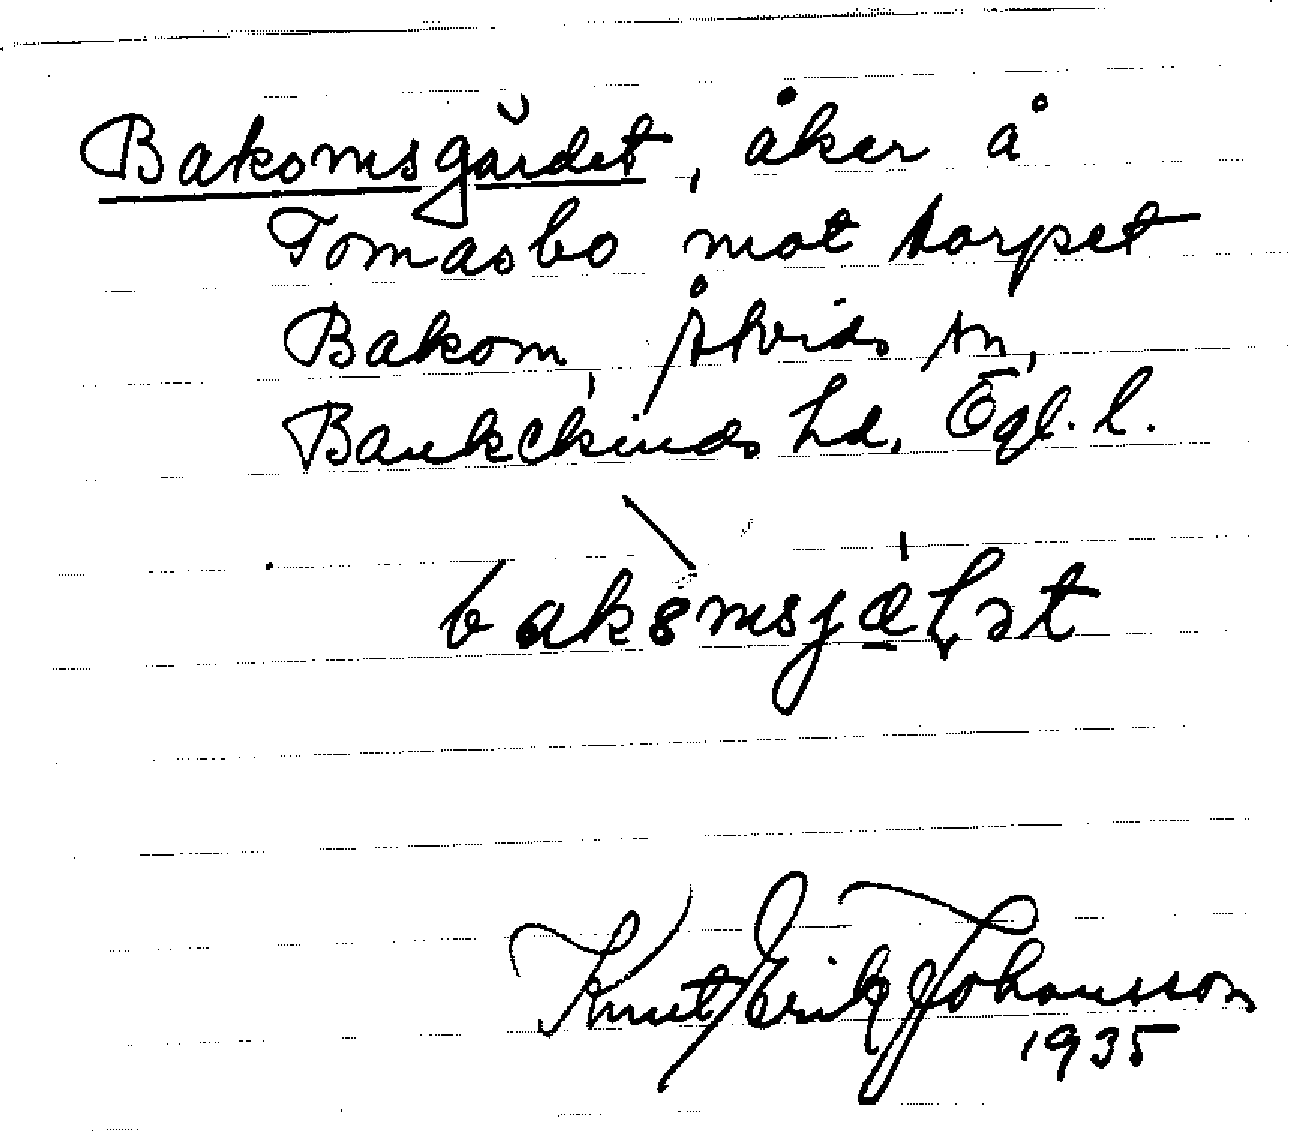 Bakomsgärdet, åker å
Tomasbo mot torpet
Bakom, Åtvids sn,
Bankekinds hd, Ögl. l.
bakomsjæ̱Lət
Knut Erik Johansson
1935